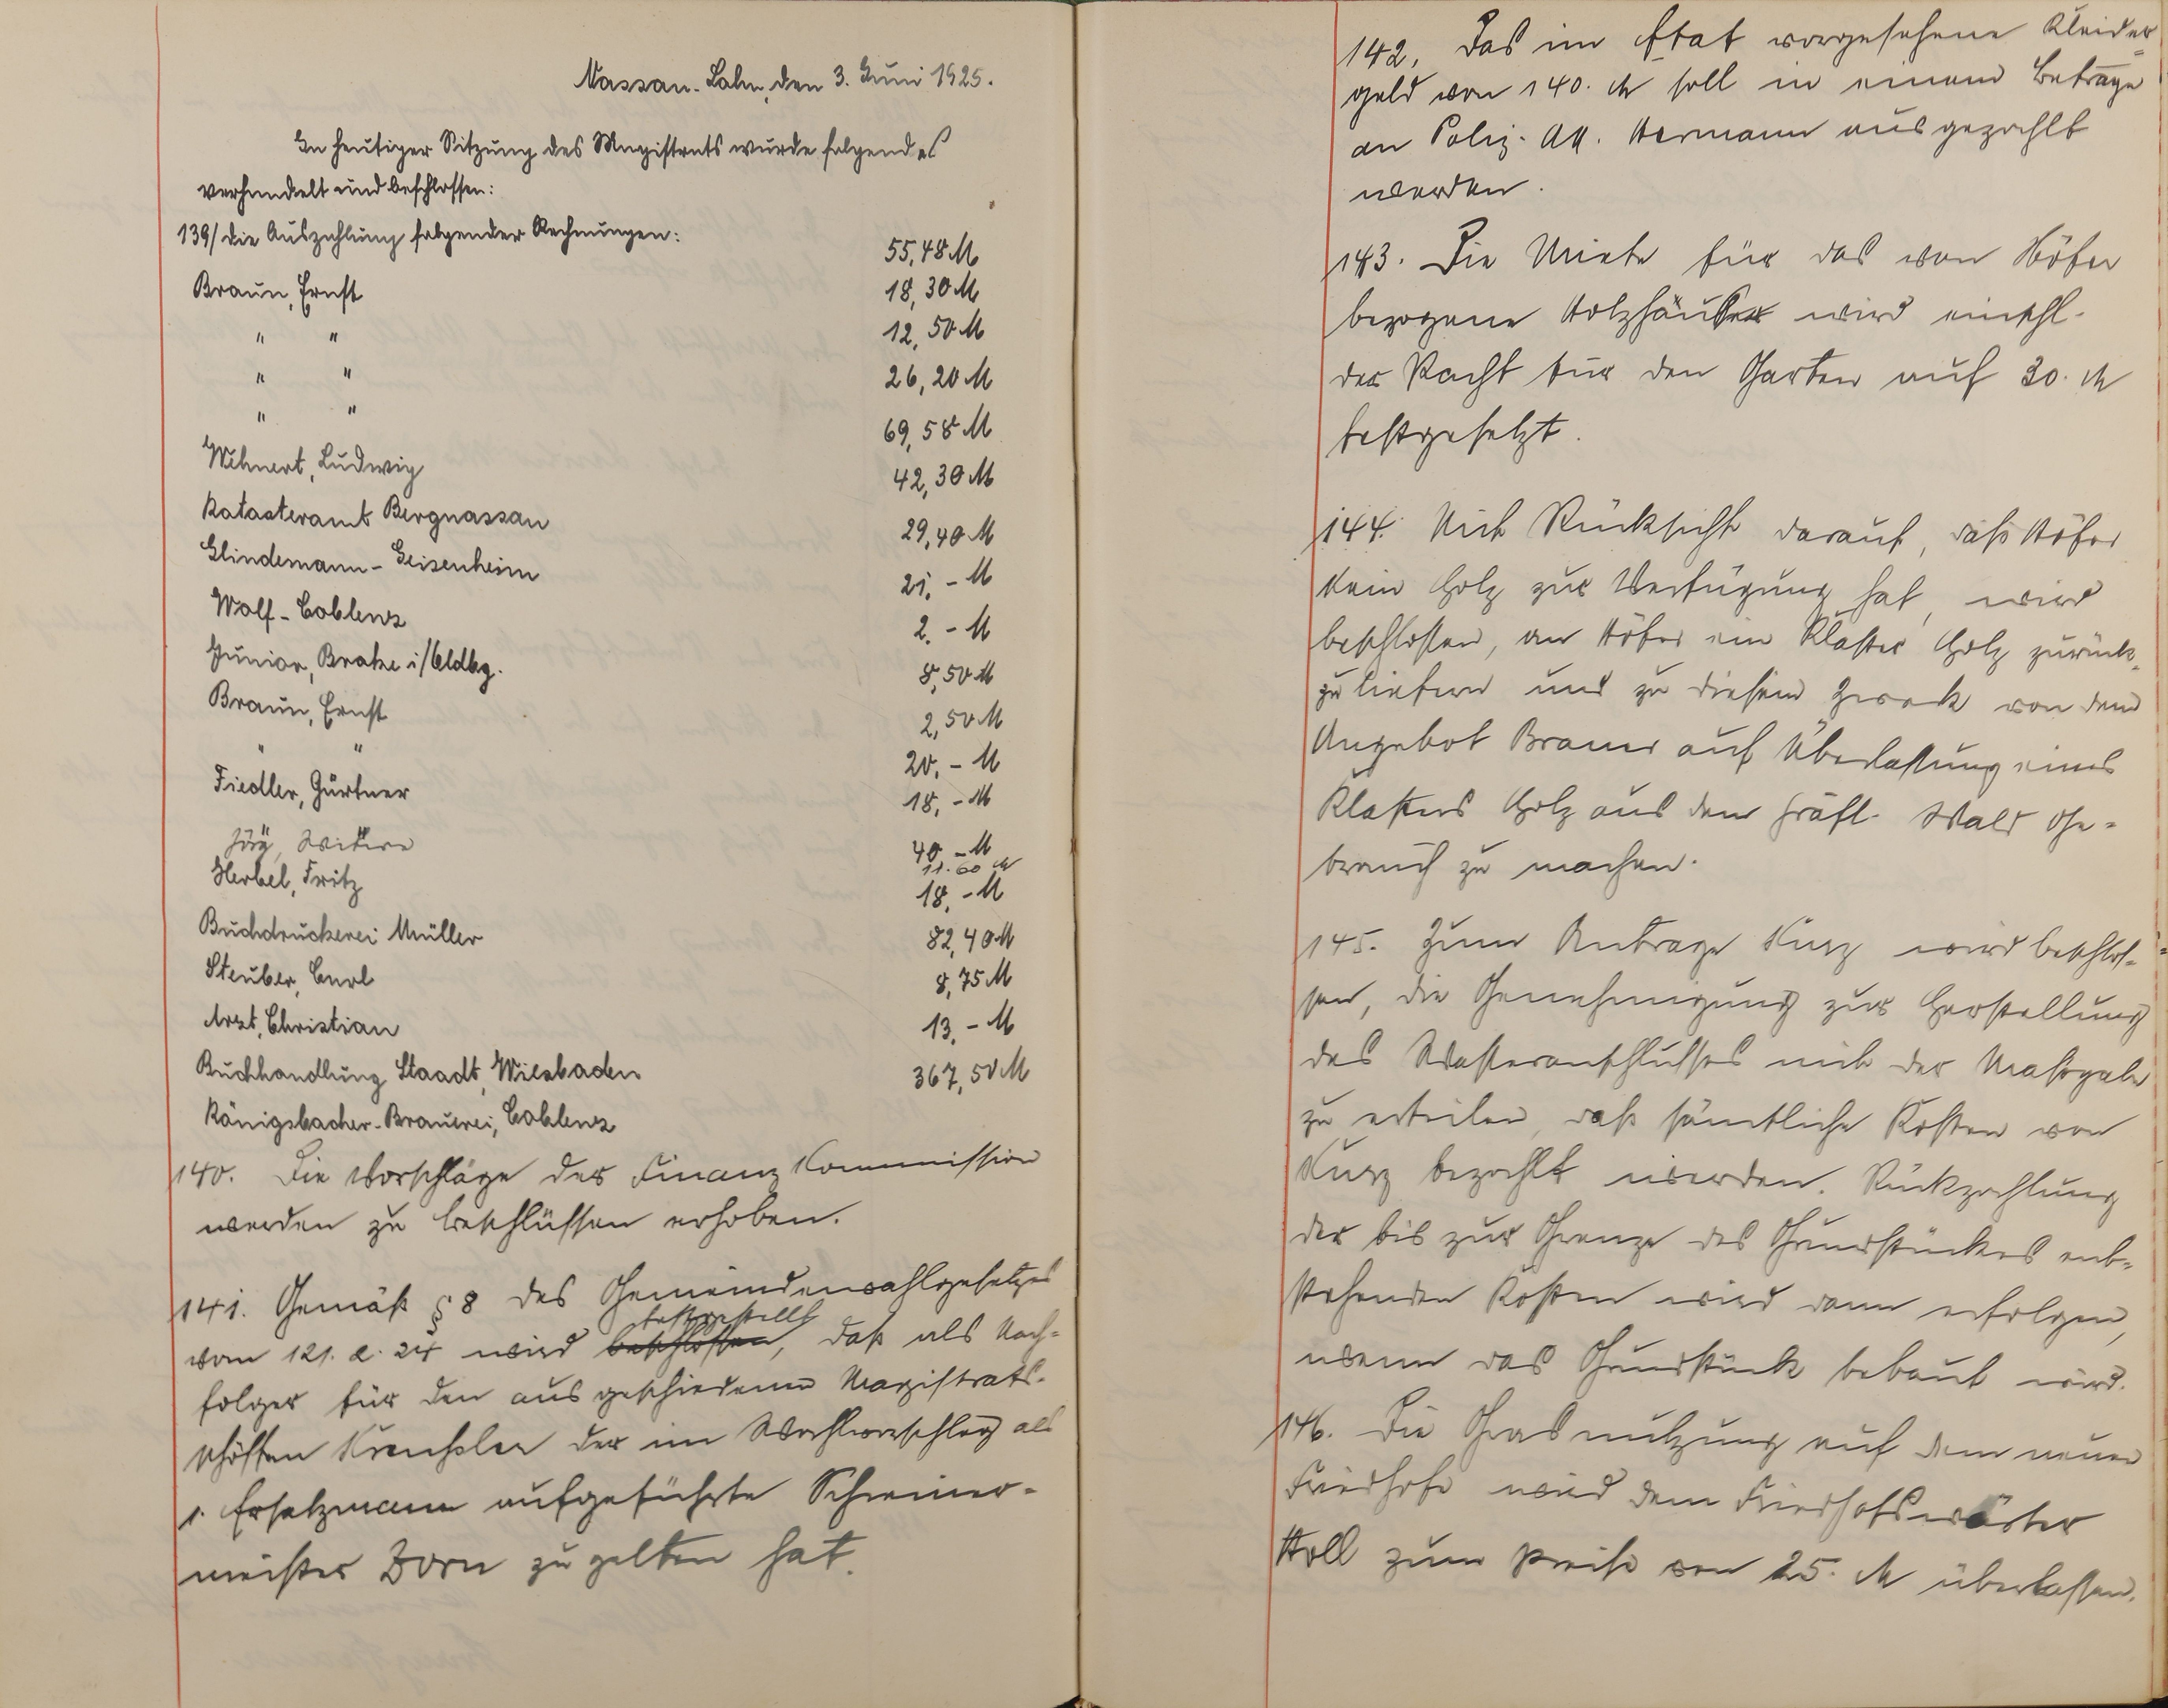 Nassau-Lahn, den 3. Juni 1925.
In heutiger Sitzung des Magistrats wurde folgendes
verhandelt und beschlossen:
139/ die Auszahlung folgender Rechnungen:
Braun, Ernst 55,48 M
" " 18,30 M
" " 12,50 M
" " 26,20 M
Mehnert, Ludwig 69,58 M
Katasteramt Bergnassau 42,30 M
Glindemann-Geisenheim 29,40 M
Wolf-Coblenz 21,- M
Junior, Brake i/Oldbg. 2,- M
Braun, Ernst 8,50 M
" " 2,50 M
Fiedler, Gärtner 20,- M
Jörg, Witwe 18,- M
Herbel, Fritz 40,- M
11.60 M
Buchdruckerei Müller 18,- M
Steuber, Carl 82,40 M
Arzt, Christian 8,75 M
Buchhandlung Staadt, Wiesbaden 13,- M
Königsbacher-Brauerei, Coblenz 367,50 M
140. Die Vorschläge der Finanz Kommission
werden zu Beschlüssen erhoben.
141. Gemäß § 8 des Gemeindewahlgesetzes
festgestellt
vom 121. 2. 24 wird beschlossen, daß als Nach-
folger für den ausgeschiedenen Magistrats-
schöffen der im Wahlvorschlag als
1. Ersatzmann aufgeführte Schreiner-
meister Dorn zu gelten hat.
142. Das im Etat vorgesehene Kleider-
geld von 140. M soll in einem Betrage
an Poliz. Ass. Hermann ausgezahlt
werden.
143. Die Miete für das von Höfer
bezogene Holzhäuser wird einschl.
der Pacht für den Garten auf 30. M
festgesetzt.
144. Mit Rücksicht darauf, daß Höfer
kein Holz zur Verfügung hat, wird
beschlossen, an Höfer ein Klafter Holz zurück-
zuliefern und zu diesem Zweck von dem
Angebot Bramer auf Überlassung eines
Klafters Holz aus dem gräfl. Wald Ge-
brauch zu machen.
145. Zum Antrage Kurz wird beschlos-
sen, die Genehmigung zur Herstellung
des Wasseranschlusses mit der Maßgabe
zu erteilen, daß sämtliche Kosten von
Kurz bezahlt werden. Rückzahlung
der bis zur Grenze des Grundstückes ent-
stehenden Kosten wird dann erfolgen,
wenn das Grundstück bebaut wird.
146. Die Grasnutzung auf dem neuen
Friedhofe wird dem Friedhofswärter
Holl zum Preise von 25. M überlassen.